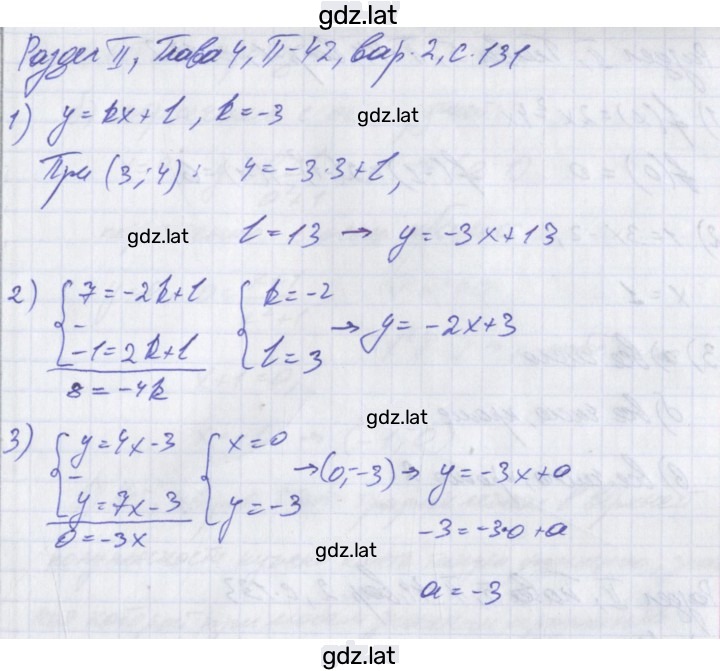 gdz.lat
Раздел II, Глава 4, П-42, вар. 2, с. 131
1) y = kx + l, k = -3
gdz.lat
При (3; 4): 4 = -3·3 + l,
gdz.lat
l = 13 → y = -3x + 13
2) { 7 = -2k + l { k = -2
-
-1 = 2k + l l = 3 → y = -2x + 3
8 = -4k
gdz.lat
3) { y = 4x - 3 { x = 0
- → (0; -3) → y = -3x + a
y = 7x - 3 y = -3
0 = -3x -3 = -3·0 + a
gdz.lat
a = -3
gdz.lat